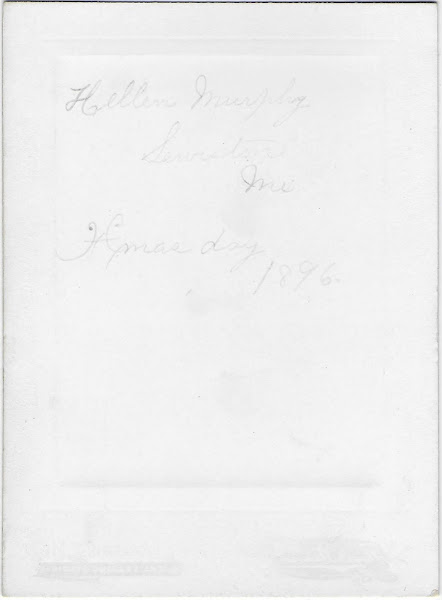 Hellen Murphy
Lewiston
Me
Xmas day
1896.